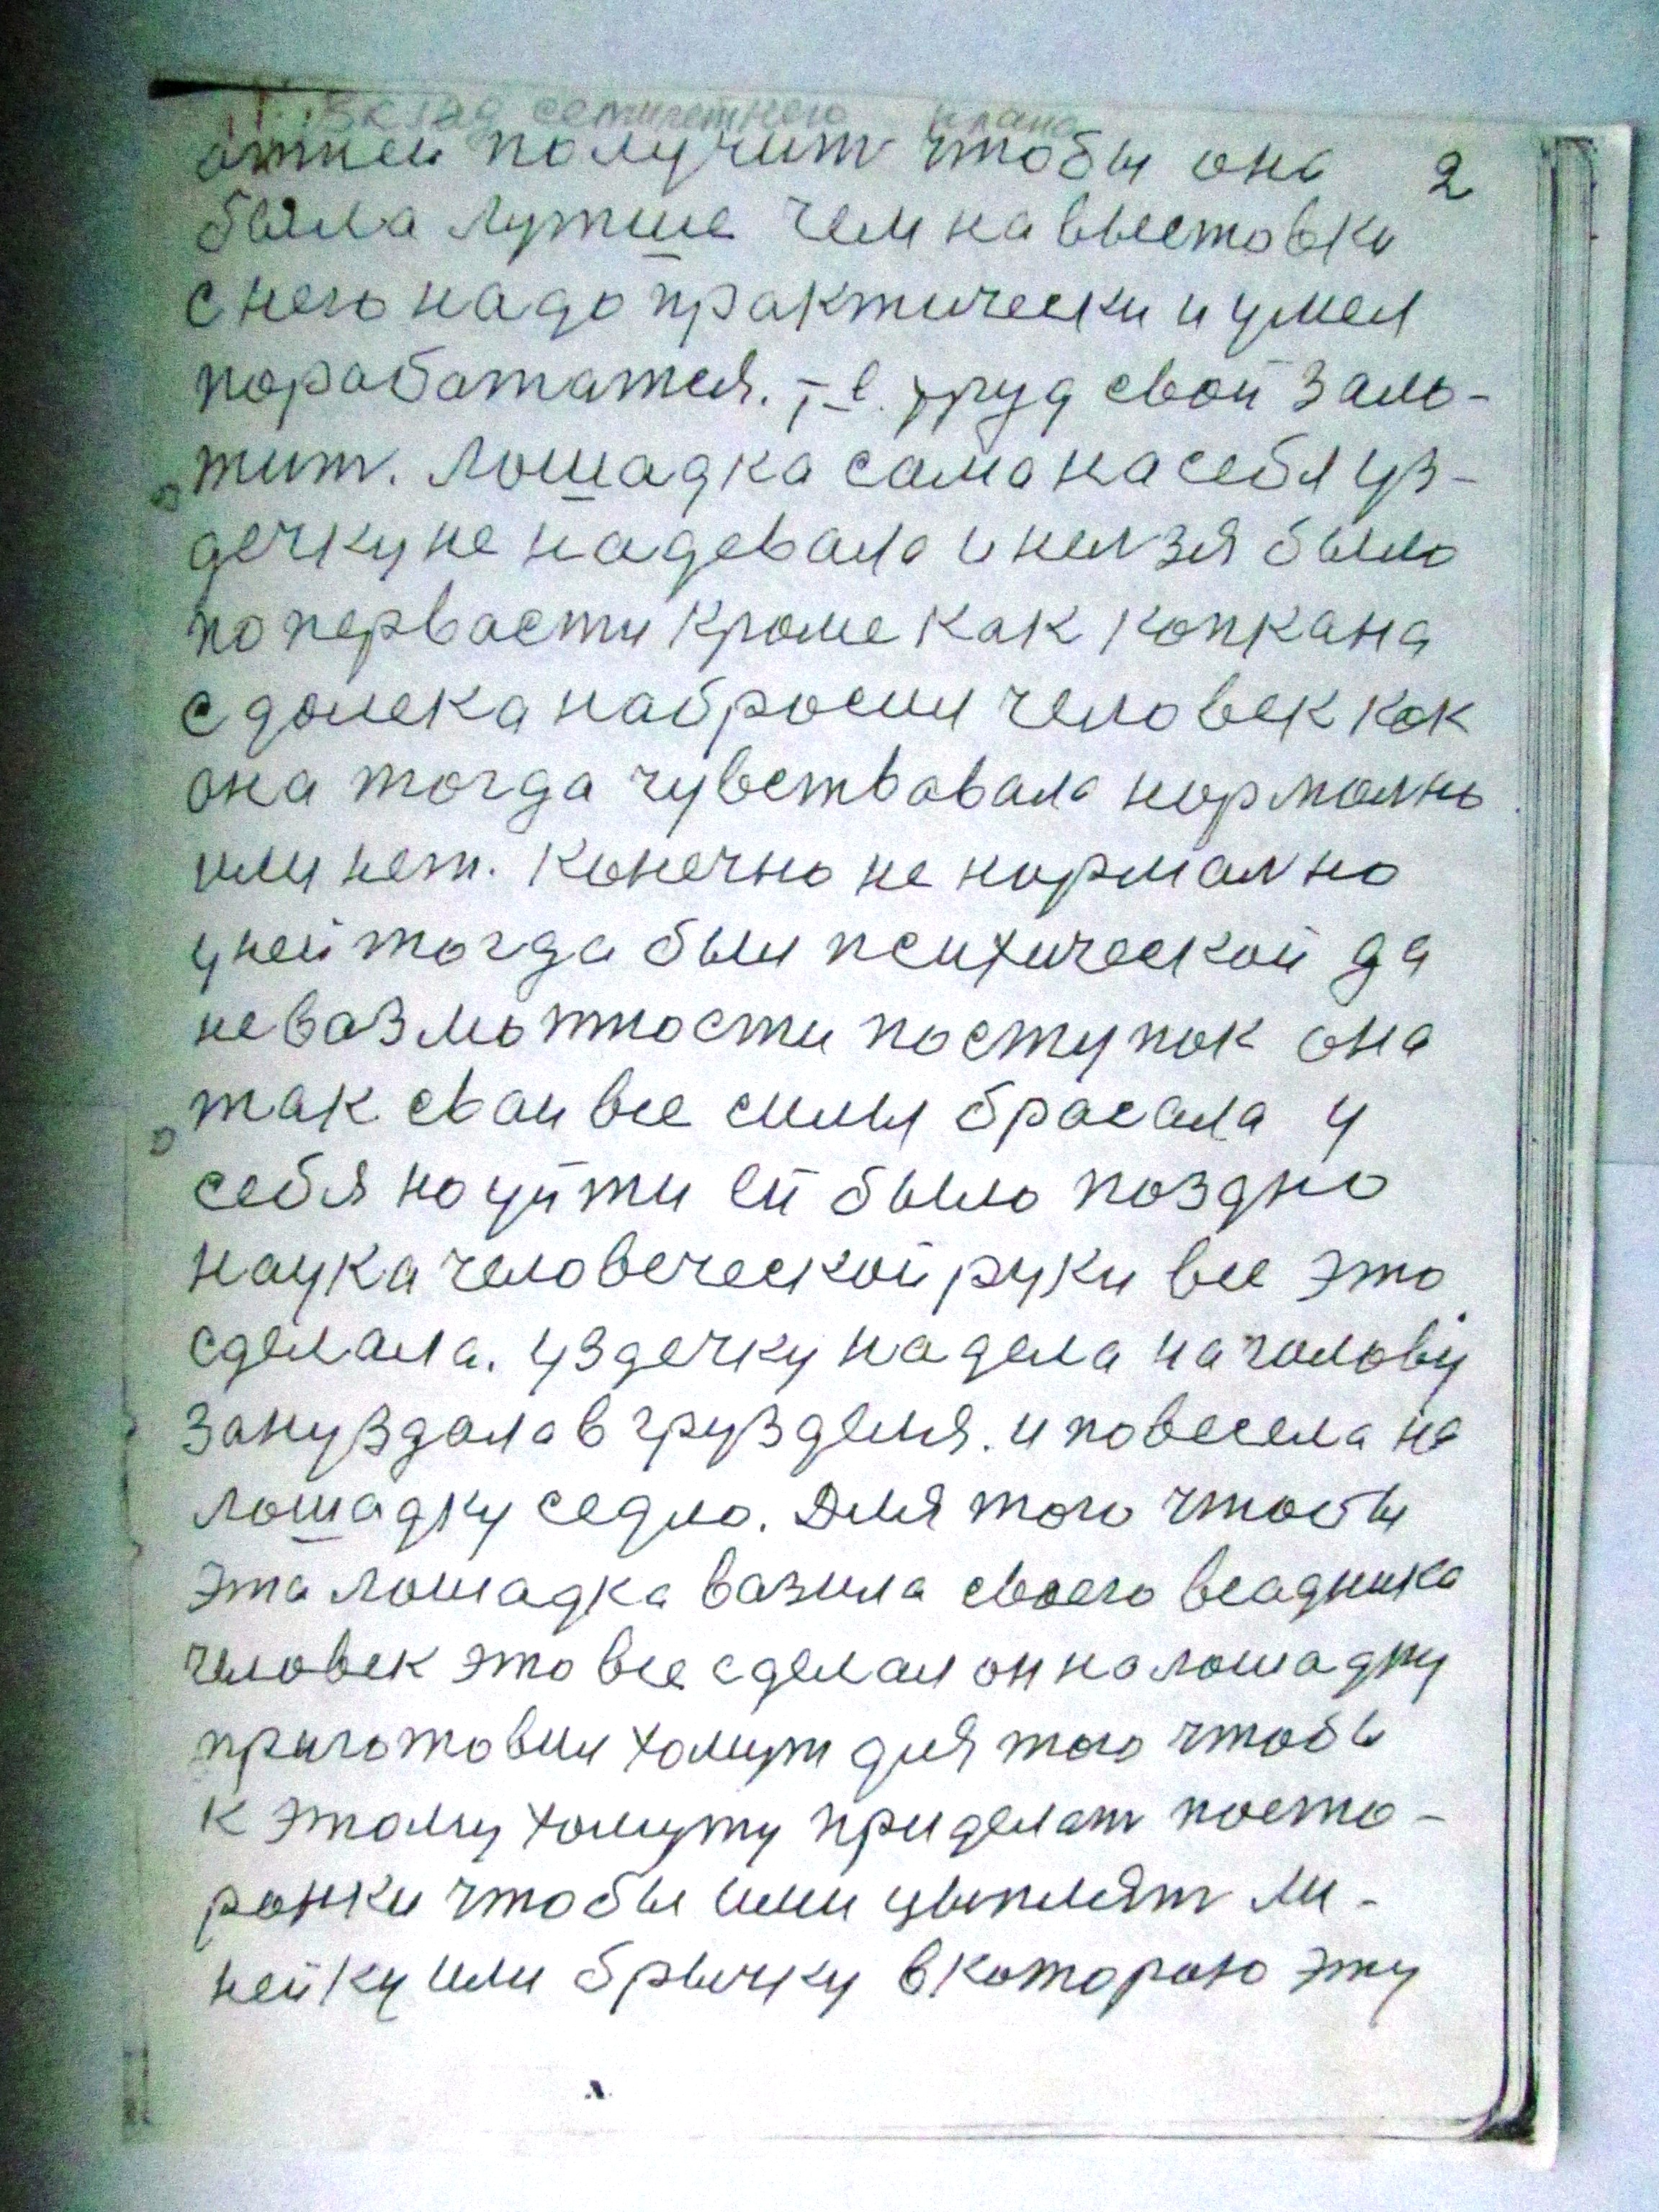 Вклад семилетнего плана
отней получит чтобы она 2
была лутше чем на выстовки
с него надо практически и умел
порабататся. т-е. труд свой зало-
тит. лошадка сама на себя уз-
дечку не надевала и нелзя было
по первасти кроме как копкана
с далека набросил человек как
она тогда чувствавала нормално
или нет. Конечно не нормално
у ней тогда был психической да
невазможности поступок она
так сваи все силы брасала у
себя но уйти ей было поздно
наука человеческой руки все это
сделала. уздечку надела на голову
зануздала в груздемя. и повесела на
лошадку седло. Для того чтобы
эта лошадка вазила своего всадника
человек это все сделал он на лошадку
приготовил хомут для того чтобы
к этому хомуту приделат посто-
ронки чтобы ими цыплят ли-
нейку или брычку в которою эту